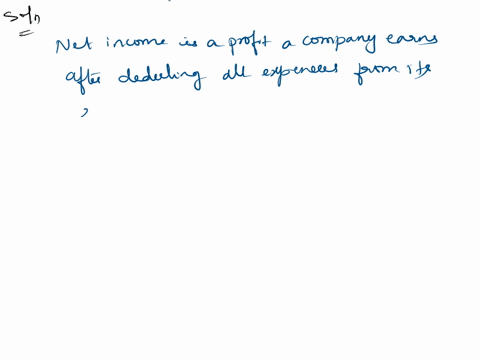 Soln
Net income is a profit a company earns
after deducting all expenses from its